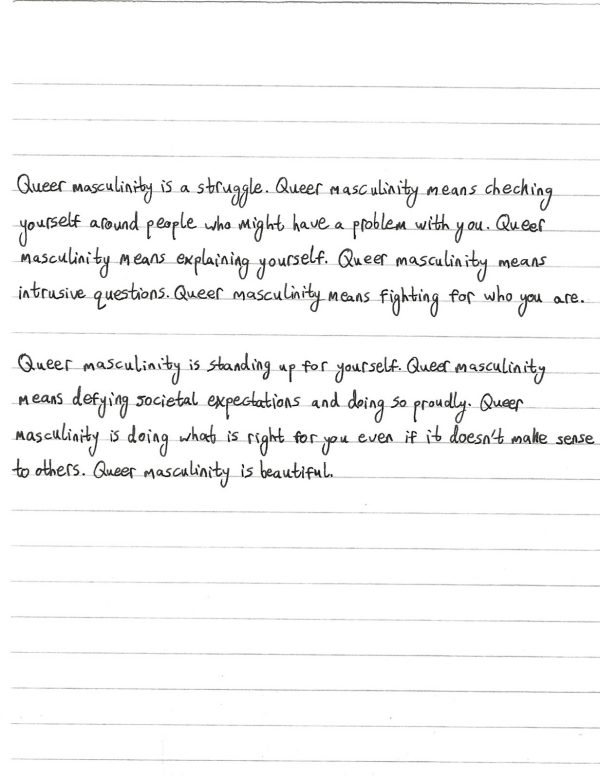 Queer masculinity is a struggle. Queer masculinity means checking
yourself around people who might have a problem with you. Queer
masculinity means explaining yourself. Queer masculinity means
intrusive questions. Queer masculinity means fighting for who you are.
Queer masculinity is standing up for yourself. Queer masculinity
means defying societal expectations and doing so proudly. Queer
masculinity is doing what is right for you even if it doesn't make sense
to others. Queer masculinity is beautiful.